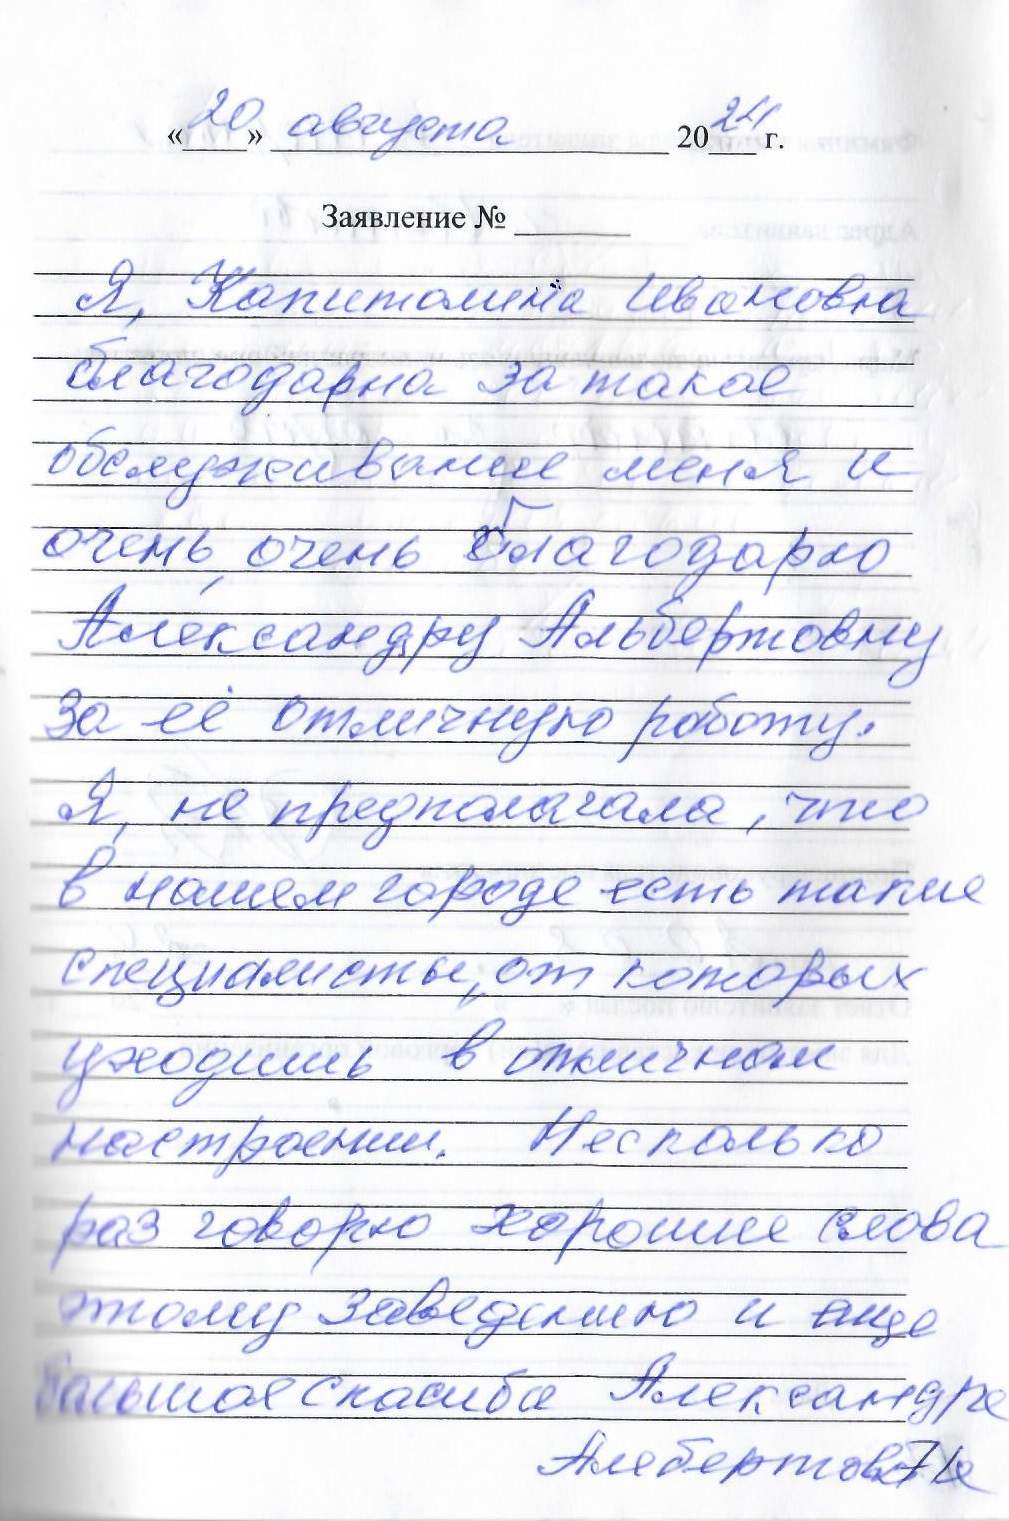 «20» августа 2024 г.
Заявление №
Я, Капитолина Ивановна
благодарна за такое
обслуживание меня и
очень, очень благодарю
Александру Альбертовну
за её отличную работу.
Я, не предполагала, что
в нашем городе есть такие
специалисты, от которых
уходишь в отличном
настроении. Несколько
раз говорю хорошие слова
этому заведению и еще
большое спасибо Александре
Альбертовне